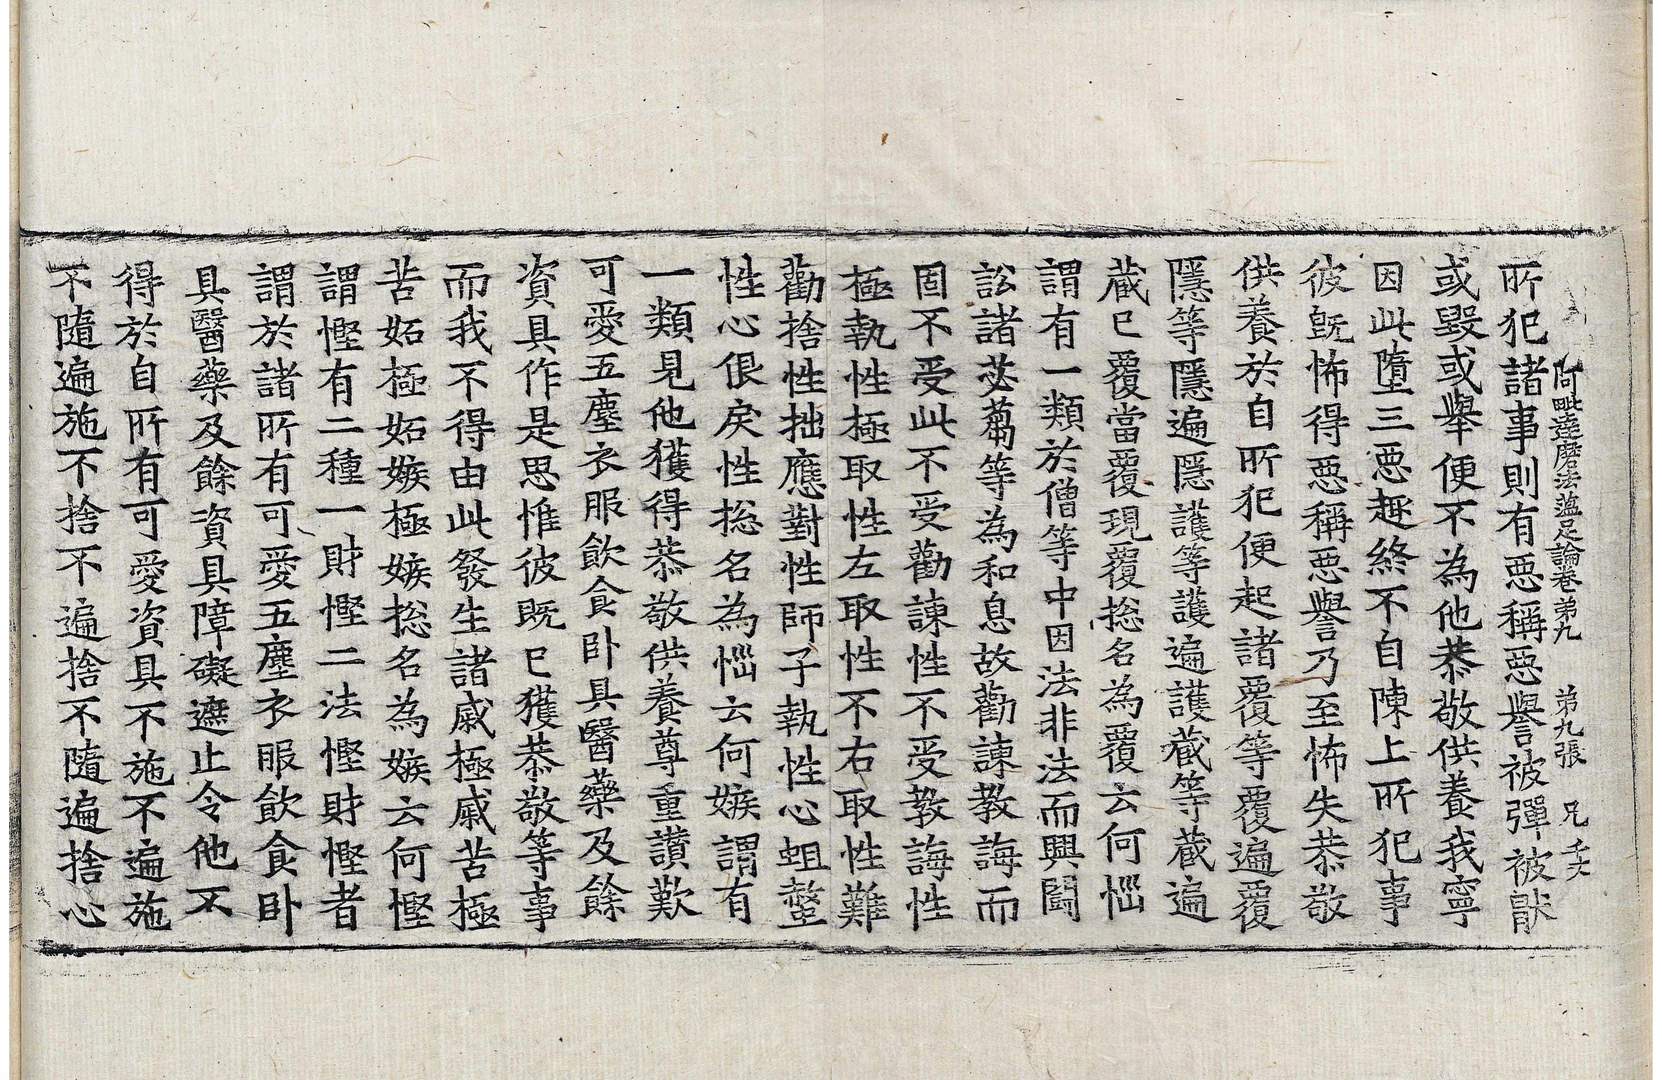 阿毗達磨法蘊足論卷第九 第九張 兄
所犯諸事則有惡稱惡譽被彈被猒
或毀或舉便不為他恭敬供養我寧
因此墮三惡趣終不自陳上所犯事
彼旣怖得惡稱惡譽乃至怖失恭敬
供養於自所犯便起諸覆等覆遍覆
隱等隱遍隱護等護遍護藏等藏遍
藏已覆當覆現覆捴名為覆云何惱
謂有一類於僧等中因法非法而興鬪
訟諸苾蒭等為和息故勸諫教誨而
固不受此不受勸諫性不受教誨性
極執性極取性左取性不右取性難
勸捨性拙應對性師子執性心蛆螫
性心佷戾性捴名為惱云何嫉謂有
一類見他獲得恭敬供養尊重讃歎
可愛五塵衣服飲食卧具醫藥及餘
資具作是思惟彼既已獲恭敬等事
而我不得由此發生諸慼極慼苦極
苦妬極妬嫉極嫉捴名為嫉云何慳
謂慳有二種一財慳二法慳財慳者
謂於諸所有可愛五塵衣服飲食卧
具醫藥及餘資具障礙遮止令他不
得於自所有可愛資具不施不遍施
不隨遍施不捨不遍捨不隨遍捨心